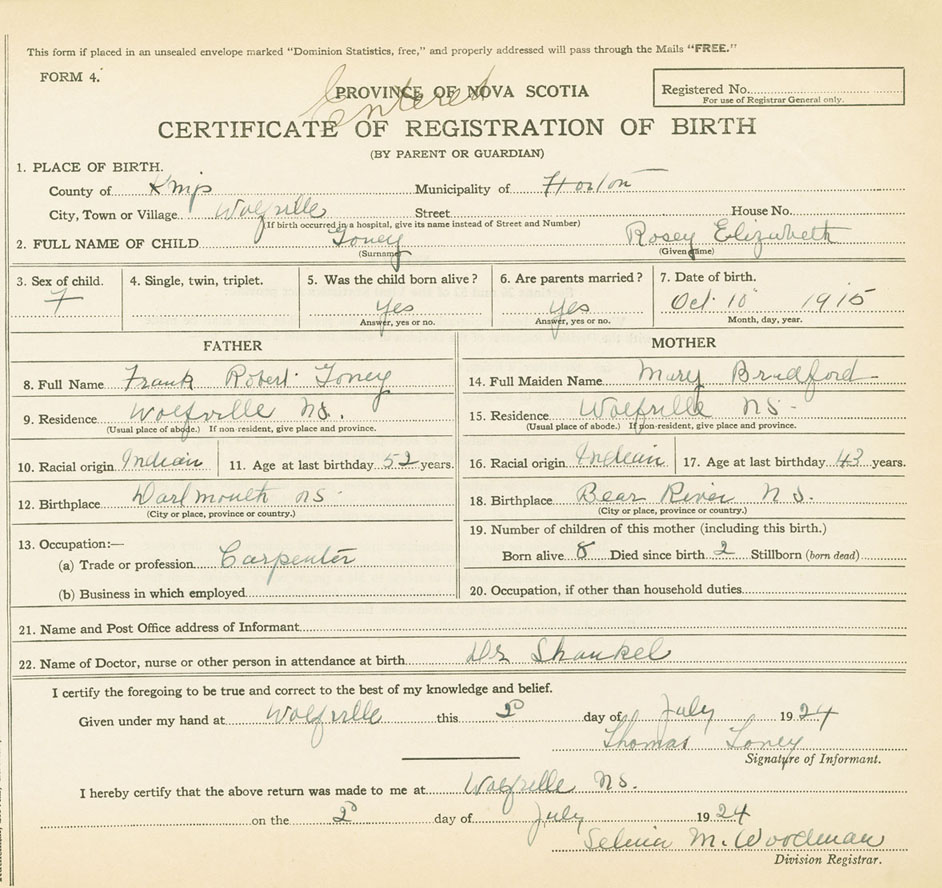 This form if placed in an unsealed envelope marked "Dominion Statistics, free," and properly addressed will pass through the Mails "FREE."
FORM 4.
Entered
PROVINCE OF NOVA SCOTIA
Registered No.
For use of Registrar General only.
CERTIFICATE OF REGISTRATION OF BIRTH
(BY PARENT OR GUARDIAN)
1. PLACE OF BIRTH.
County of Kings Municipality of Horton
City, Town or Village Wolfville Street House No.
(If birth occurred in a hospital, give its name instead of Street and Number)
2. FULL NAME OF CHILD Toney Rosey Elizabeth
(Surname) (Given name)
3. Sex of child. 4. Single, twin, triplet. 5. Was the child born alive? 6. Are parents married? 7. Date of birth.
F yes yes Oct 10 1915
Answer, yes or no. Answer, yes or no. Month, day, year.
FATHER MOTHER
8. Full Name Frank Robert Toney
14. Full Maiden Name Mary Bradford
9. Residence Wolfville N.S.
(Usual place of abode.) If non-resident, give place and province.
15. Residence Wolfville N.S.
(Usual place of abode.) If non-resident, give place and province.
10. Racial origin Indian 11. Age at last birthday 52 years.
16. Racial origin Indian 17. Age at last birthday 43 years.
12. Birthplace Dartmouth N.S.
(City or place, province or country.)
18. Birthplace Bear River N.S.
(City or place, province or country.)
13. Occupation:—
(a) Trade or profession Carpenter
(b) Business in which employed
19. Number of children of this mother (including this birth.)
Born alive 8 Died since birth 2 Stillborn (born dead)
20. Occupation, if other than household duties
21. Name and Post Office address of Informant
22. Name of Doctor, nurse or other person in attendance at birth Dr Shankel
I certify the foregoing to be true and correct to the best of my knowledge and belief.
Given under my hand at Wolfville this 2 day of July 1924
Thomas Toney
Signature of Informant.
I hereby certify that the above return was made to me at Wolfville N.S.
on the 2 day of July 1924
Selina M. Woodman
Division Registrar.